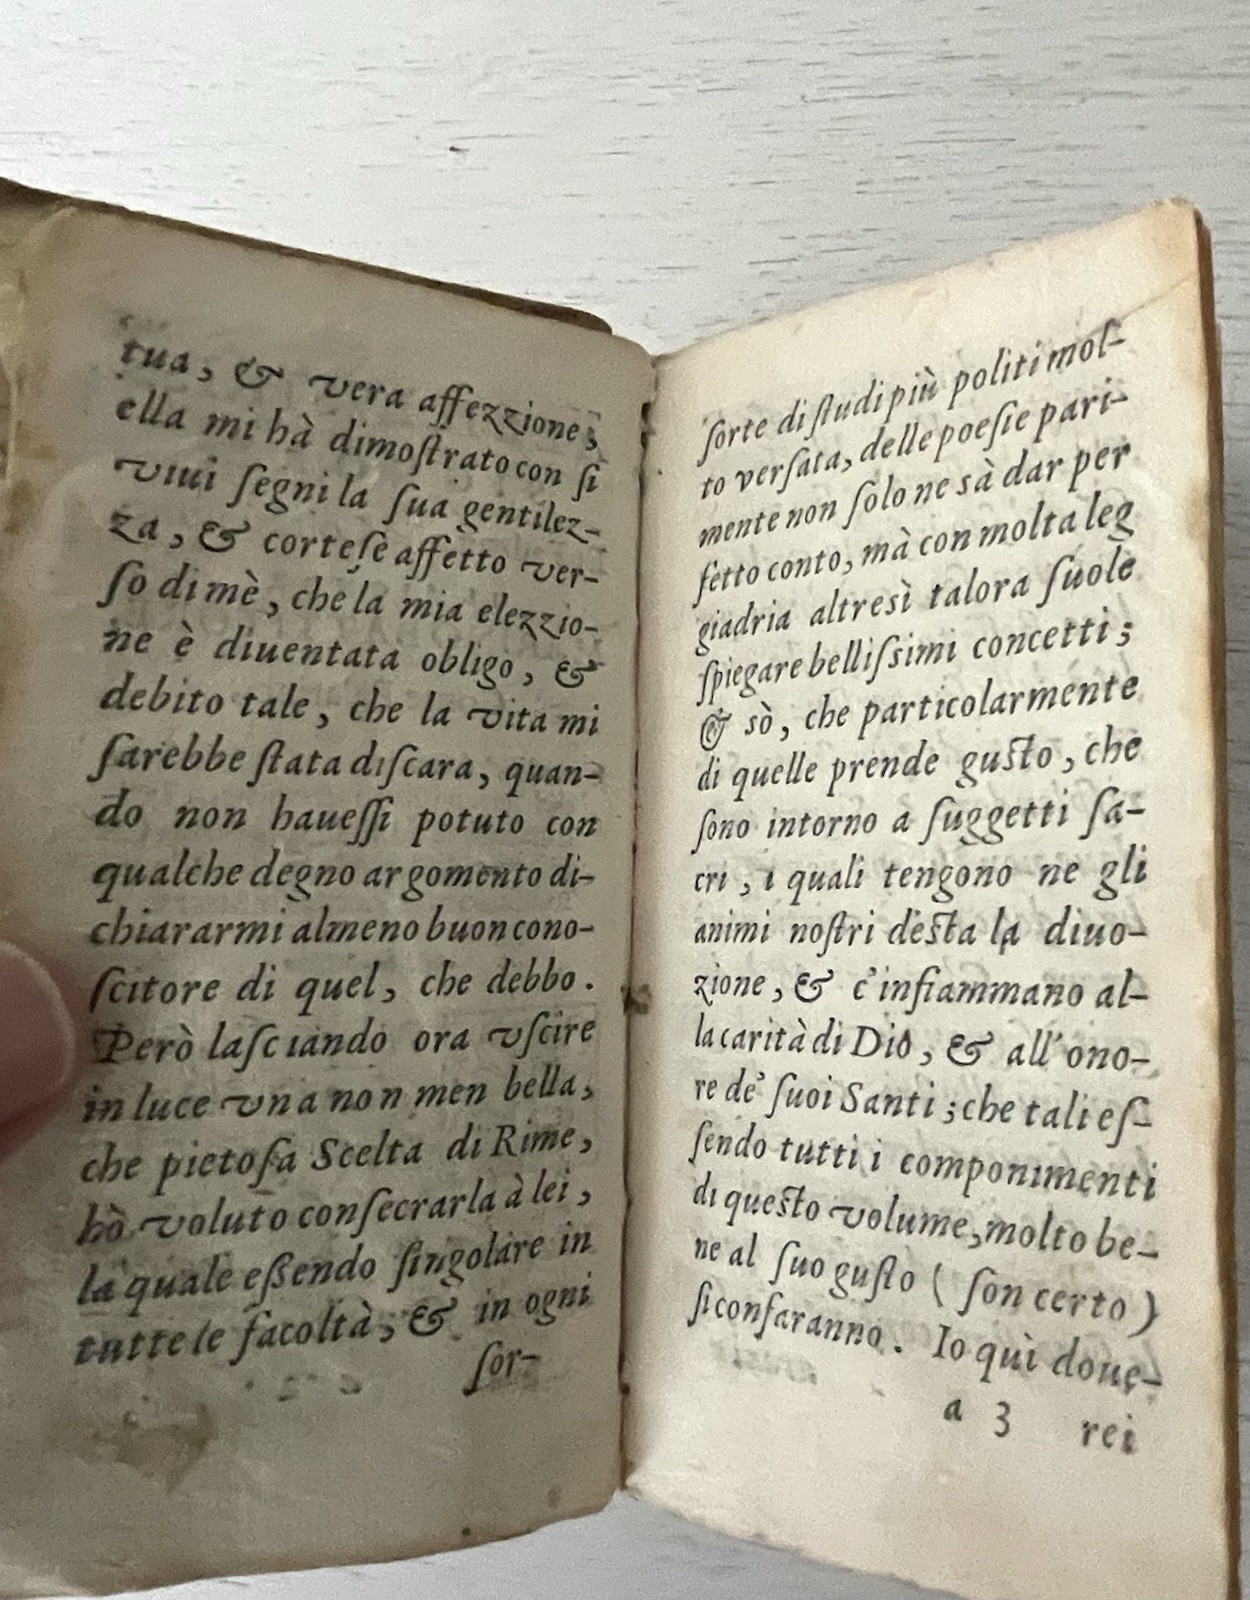 tua, & vera affezzione;
ella mi hà dimoſtrato con ſi
viui ſegni la ſua gentilez-
za, & corteſe affetto ver-
ſo di mè, che la mia elezzio-
ne è diuentata obligo, &
debito tale, che la vita mi
ſarebbe ſtata diſcara, quan-
do non haueſſi potuto con
qualche degno argomento di-
chiararmi almeno buon cono-
ſcitore di quel, che debbo.
Però laſciando ora vſcire
in luce vna non men bella,
che pietoſa Scelta di Rime,
hò voluto conſecrarla à lei,
la quale eßendo ſingolare in
tutte le facoltà, & in ogni
ſor-
ſorte di ſtudi più politi mol-
to verſata, delle poeſie pari-
mente non ſolo ne sà dar per
fetto conto, mà con molta leg
giadria altresì talora ſuole
ſpiegare belliſsimi concetti;
& sò, che particolarmente
di quelle prende guſto, che
ſono intorno a ſuggetti ſa-
cri, i quali tengono ne gli
animi noſtri deſta la diuo-
zione, & c'infiammano al-
la carità di Dio, & all'ono-
re de' ſuoi Santi; che tali eſ-
ſendo tutti i componimenti
di queſto volume, molto be-
ne al ſuo guſto ( ſon certo )
ſi confaranno. Io quì doue-
a 3 rei